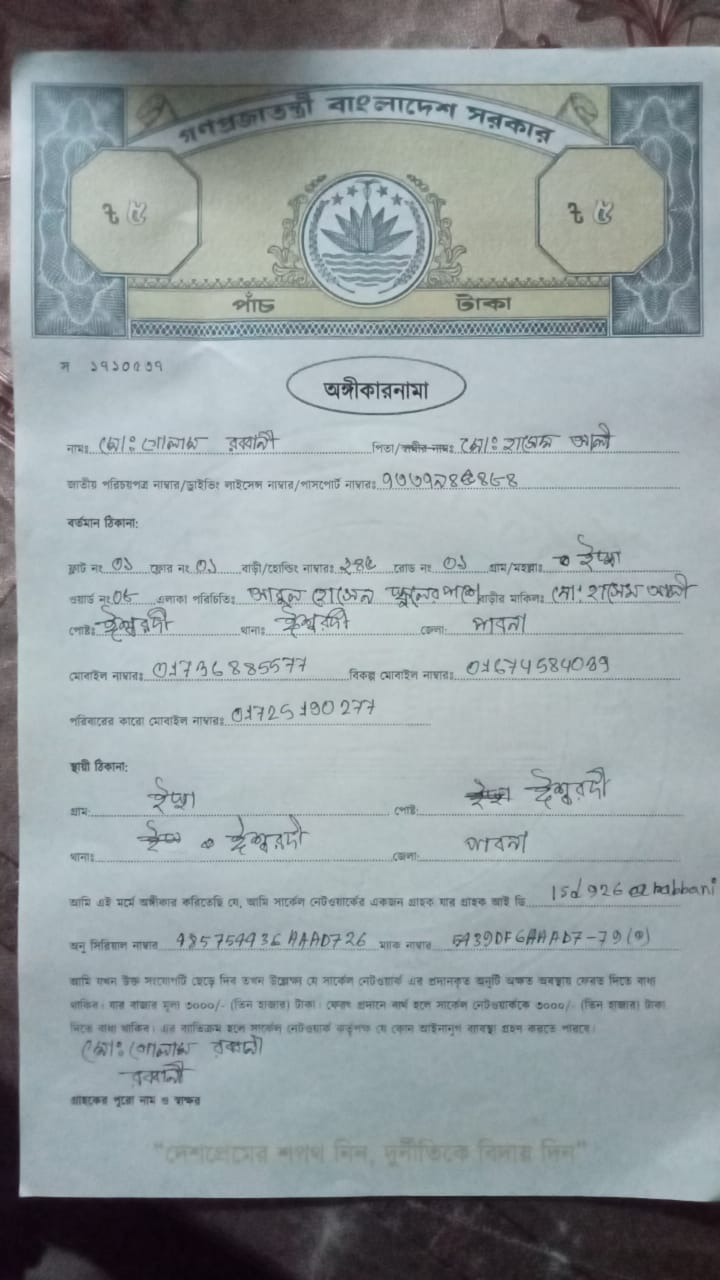 গণপ্রজাতন্ত্রী বাংলাদেশ সরকার
ট ৫ ট ৫
পাঁচ টাকা
স ১৭১০৫৩৭
অঙ্গীকারনামা
নামঃ মো: গোলাম রব্বানী পিতা/স্বামীর নামঃ মো: হাসেম আলী
জাতীয় পরিচয়পত্র নাম্বার/ড্রাইভিং লাইসেন্স নাম্বার/পাসপোর্ট নাম্বারঃ
বর্তমান ঠিকানা:
ফ্লাট নং ০১ ফ্লোর নং ০১ বাড়ী/হোল্ডিং নাম্বারঃ ২৪৫ রোড নং ০১ গ্রাম/মহল্লাঃ
ওয়ার্ড নং ০৫ এলাকা পরিচিতিঃ আবুল হোসেন স্কুলের পাশে বাড়ীর মালিকঃ মো: হাসেম আলী
পোষ্টঃ ঈশ্বরদী থানাঃ ঈশ্বরদী জেলাঃ পাবনা
মোবাইল নাম্বারঃ 01736885577 বিকল্প মোবাইল নাম্বারঃ 01674584039
পরিবারের কারো মোবাইল নাম্বারঃ 01725190277
স্থায়ী ঠিকানা:
গ্রাম: পোষ্ট: ঈশ্বরদী
থানাঃ ঈশ্বরদী জেলা: পাবনা
আমি এই মর্মে অঙ্গীকার করিতেছি যে, আমি সার্কেল নেটওয়ার্কের একজন গ্রাহক যার গ্রাহক আই ডি
অনু সিরিয়াল নাম্বার 485754436AAAD726 ম্যাক নাম্বার
আমি যখন উক্ত সংযোগটি ছেড়ে দিব তখন উল্লেখ্য যে সার্কেল নেটওয়ার্ক এর প্রদানকৃত অনুটি অক্ষত অবস্থায় ফেরত দিতে বাধ্য
থাকিব। যার বাজার মূল্য ৩০০০/- (তিন হাজার) টাকা। ফেরৎ প্রদানে ব্যর্থ হলে সার্কেল নেটওয়ার্ককে ৩০০০/- (তিন হাজার) টাকা
দিতে বাধ্য থাকিব। এর ব্যতিক্রম হলে সার্কেল নেটওয়ার্ক কর্তৃপক্ষ যে কোন আইনানুগ ব্যবস্থা গ্রহন করতে পারবে।
মো: গোলাম রব্বানী
রব্বানী
গ্রাহকের পুরো নাম ও স্বাক্ষর
"দেশপ্রেমের শপথ নিন, দুর্নীতিকে বিদায় দিন"